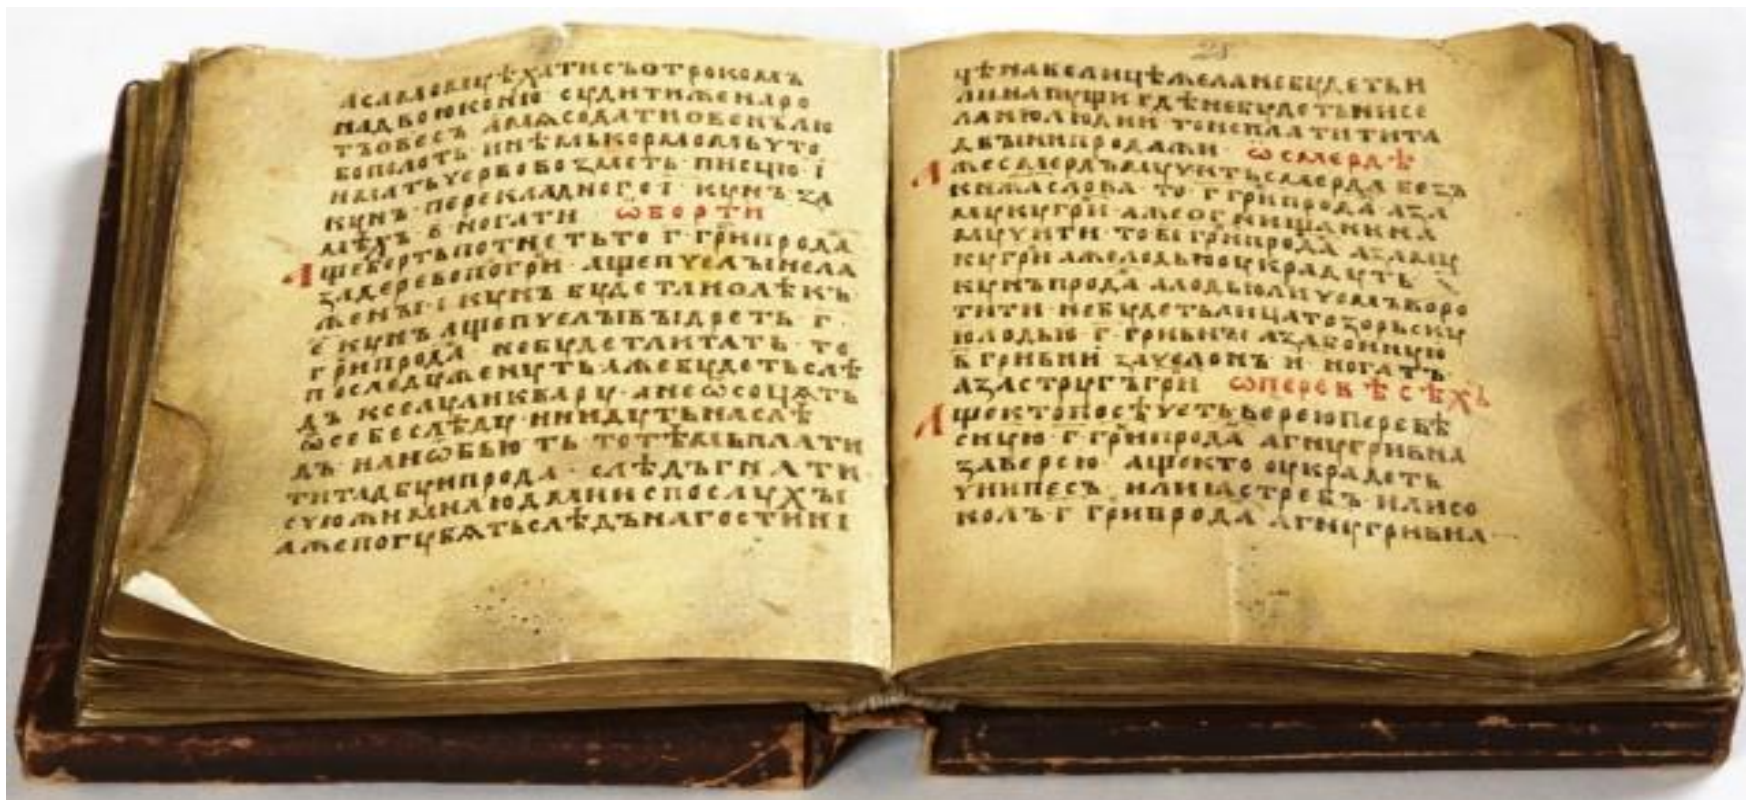 асамомꙋѣхатисъотрокомъ
надвоюконю сꙋдитиженаро
тъовесъ амѧсодатиовенълю
бополоть инѣмькормомьчто
имать черевовозметь писцю ї
кꙋнъ перекладного г҃ кꙋнъ за
мѣхъ в ногати ѡборти
Ащебортьпотнетьто г гр҃нпрода
задеревопогрн ащепчелывела
жены ї кꙋнъ бꙋдетлиолѣкъ
е кꙋнъ ащепчелывыдреть г
гр҃нпрода небꙋдетлитать то
послѣдꙋженꙋть ажебꙋдетьслѣ
дъ кселꙋиликварꙋ анеѡсочать
ѿсебеслѣдꙋ ниидꙋтьнаслѣ
дъ илиѡбьють тотѣмьплати
титадбꙋипрода слѣдъгнати
сꙋюжимилюдмииспослꙋхы
ажепогꙋбѧтьслѣдънагостинї
28
цѣнавелицѣжеланебꙋдетьи
линапꙋщи гдѣнебꙋдетьнисе
ланилюдии тонеплатититта
двыипродажи ѡсмердѣ
Ажесмердъмꙋчитьсмерда безъ
кнжаслова то г грнпрода аза
мꙋкꙋгрн ажеогнищанина
мꙋчити товїгрнпрода азамꙋ
кꙋгрн ажелодьюꙋкрадꙋть
кꙋнъпрода алодьюличемъворо
тити небꙋдетьлицатозорьскꙋ
юлодью г гривны азабоиную
в҃ гривни зачелонъ и ногатъ
азастрꙋгъгрн ѡперевѣсѣхъ
Ащектопосѣчетьвереюперевѣ
снꙋю г грнпрода агнꙋгривна
заверею ащекто оукрадеть
чиипесъ илиꙗстребъ илисо
колъ г грнпрода агнꙋгривна